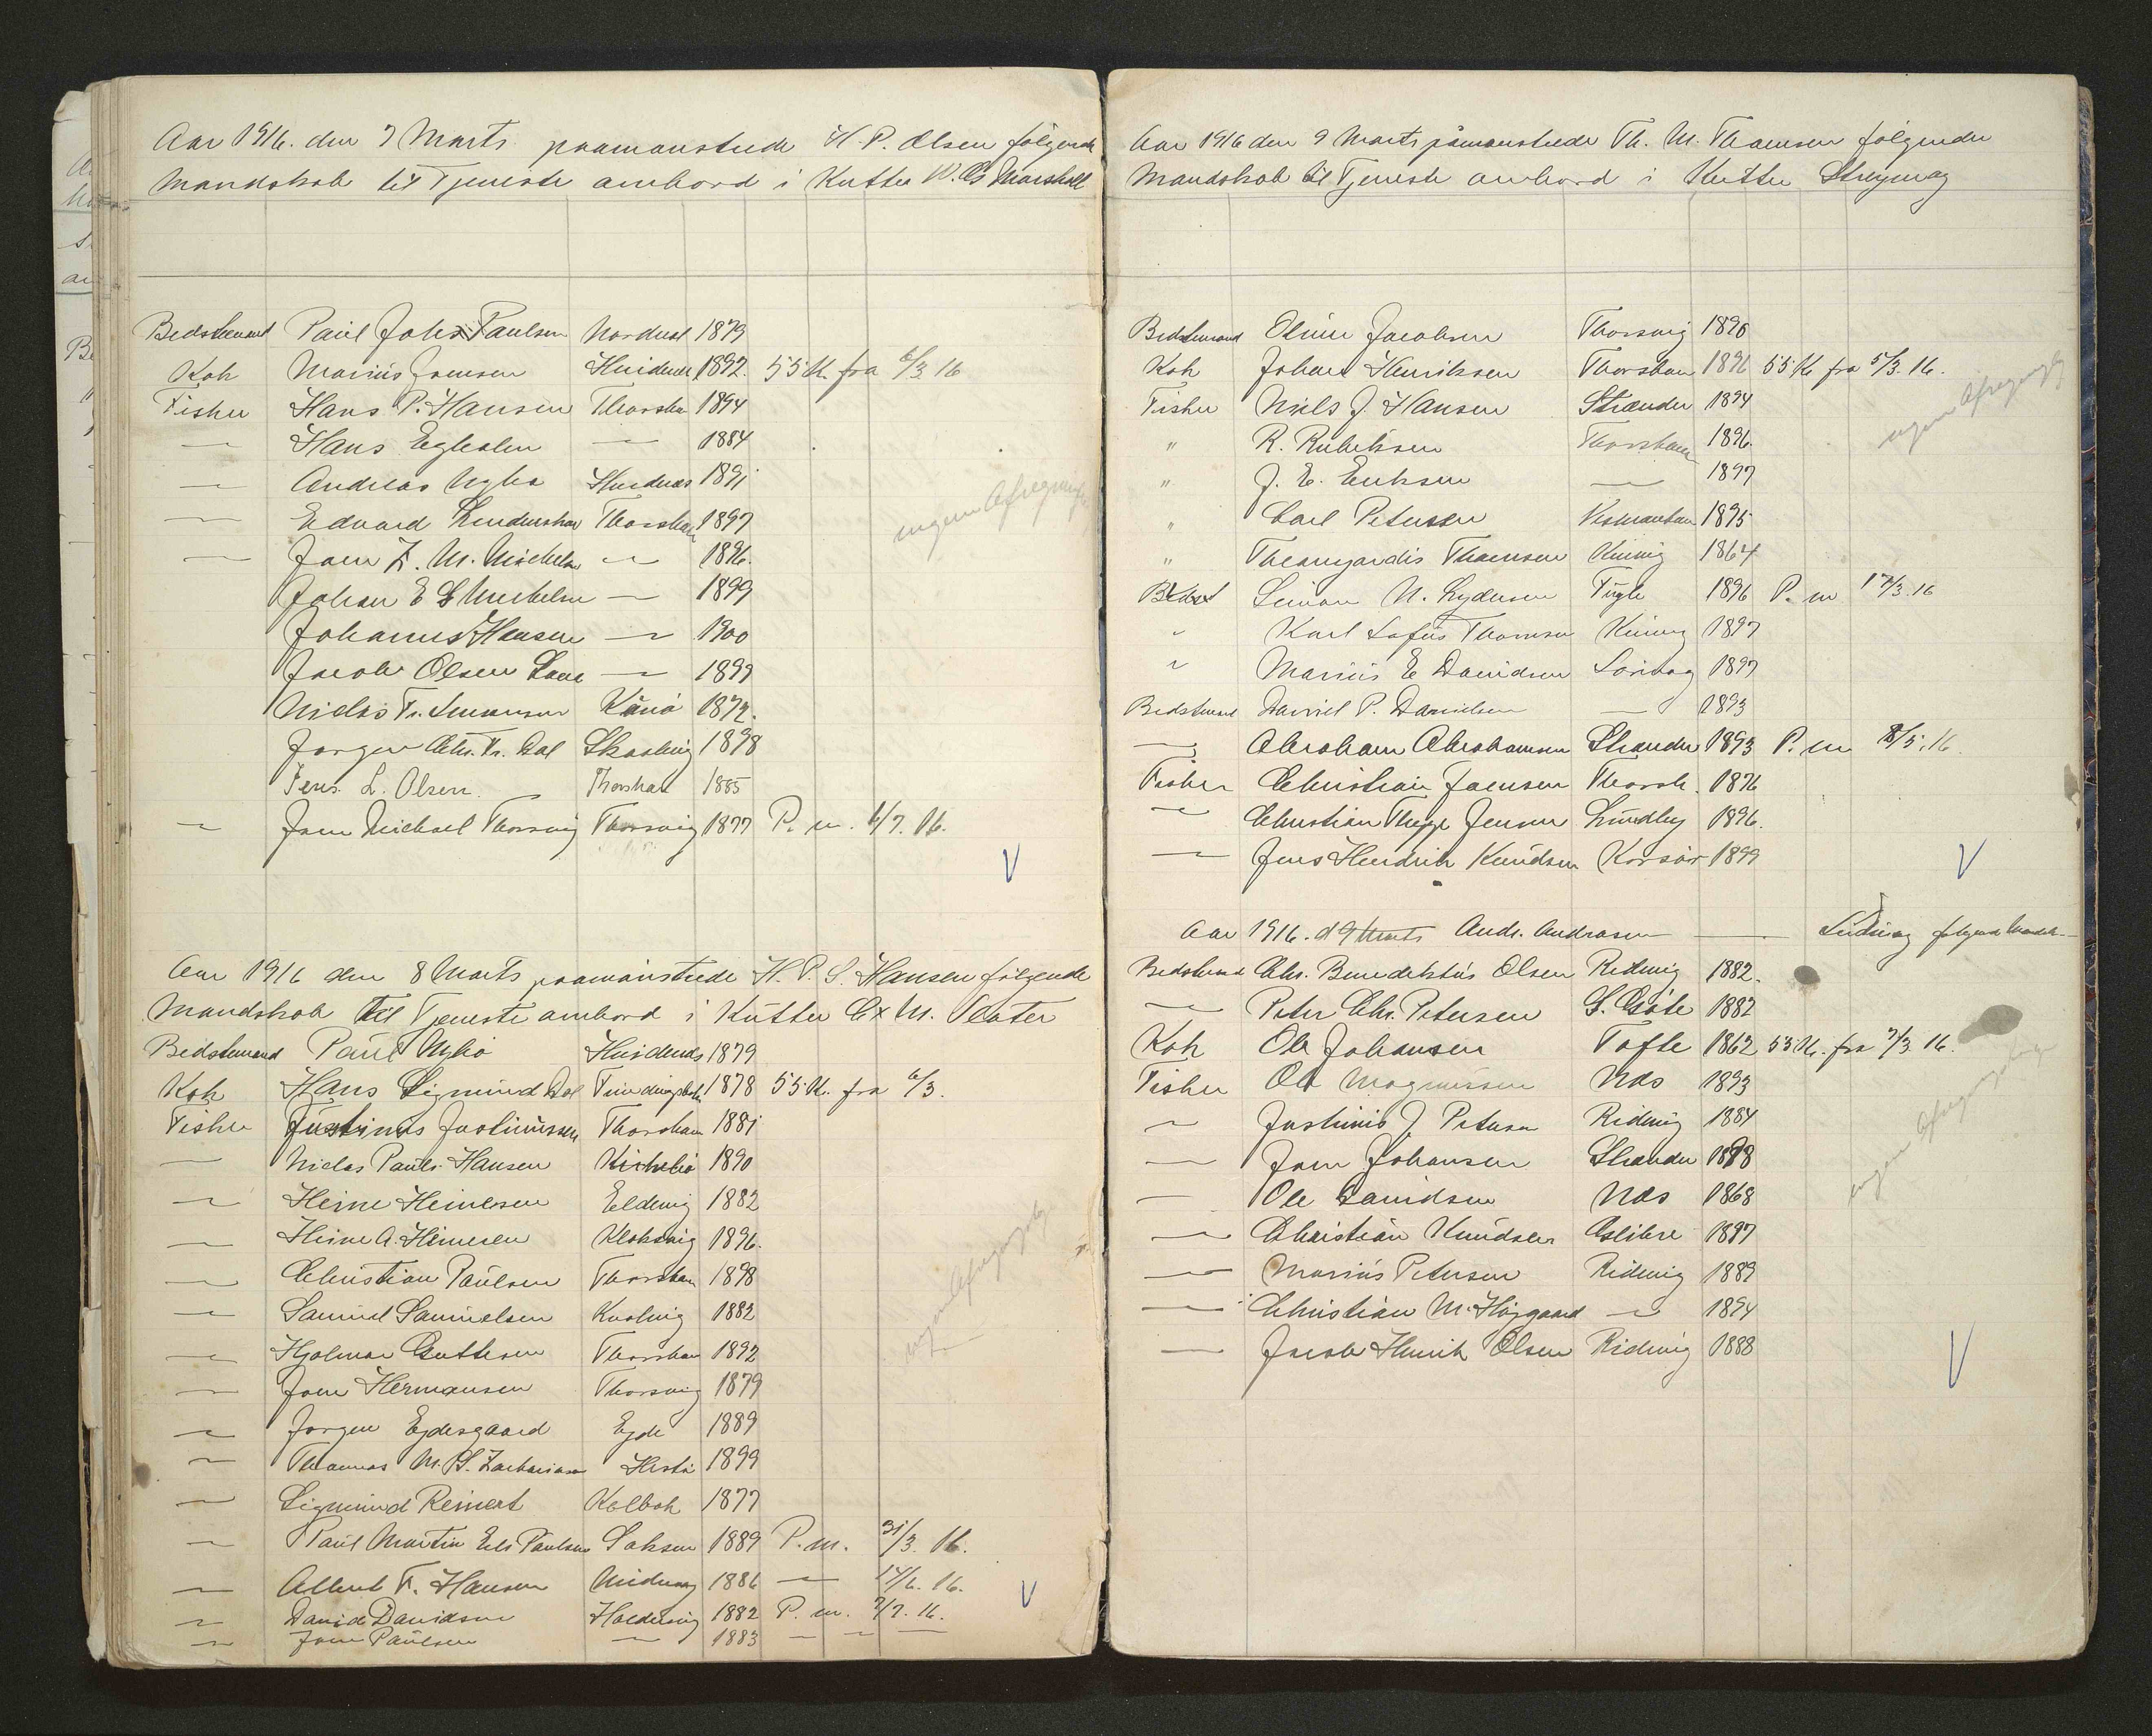 Aar 1916. den 7 Marts paamønstrede H. P. Olsen følgende
Mandskab til Tjeneste ombord i Kutter W. G. Marshall
Bedstemand Paul Johs Paulsen Norddal 1879
Kok Marius Joensen Hvidenæs 1892. 55 K. fra 6/3 16
Fisker Hans P. Hansen Thorshavn 1894
— Hans Egholm — 1884
— Andreas Nybo Hvidenæs 1891
ingen Afregning
— Edvard Lindenskov Thorshavn 1897
— Joen Z. M. Mickelsen — 1896.
Johan E S Mickelsen — 1899
Johannes Hansen — 1900
Jacob Olsen — 1899
Niclas Fr. Simonsen 1872.
Jørgen Chr. Fr. Dal Skaalevig 1898
Jens L. Olsen. Thorshavn 1885
— Joen Michael Thorsvig Thorsvig 1877 P. m. 6/7. 16.
V
Aar 1916 den 8 Marts paamønstrede H. P. S. Hansen følgende
Mandskab til Tjeneste ombord i Kutter C x M. Slater
Bedstemand Paul Nybo Hvidenæs 1879
Kok Hans Sigmund Dal 1878 55 K. fra 6/3.
Fisker Justinus Justinussen Thorshavn 1881
— Niclas Pauli Hansen Kirkebø 1890
— Heine Heinesen Eldevig 1882
— Heine A. Heinesen Klaksvig 1896.
— Christian Paulsen Thorshavn 1898
ingen Afregning
— Samuel Samuelsen Kvalvig 1882
— Hjalmar Guttesen Thorshavn 1892
— Joen Hermansen Thorsvig 1879
— Jørgen Ejdesgaard Ejde 1889
— Thomas M. S. Zachariasen Hestø 1899
— Sigmund Reinert Kolbak 1877
— Paul Martin Paulsen Saksen 1889 P. m. 31/3. 16.
— Albert F. Hansen Midvaag 1886 — 14/6. 16. V
— David Davidsen Haldersvig 1882 P. m. 7/7. 16.
— Joen Paulsen — 1883 — — —
Aar 1916 den 9 Marts påmønstrede Th. M. Thomsen følgende
Mandskab til Tjeneste ombord i Kutter Streymoy
Bedstemand Oliver Jacobsen Thorsvig 1890
Kok Johan Henriksen Thorshavn 1896 55 K fra 5/3. 16.
Fisker Niels J. Hansen Strænder 1894
ingen Afregning
" R. Rubeksen Thorshavn 1896.
" J. E. Eriksen — 1897
" Carl Petersen Vestmanhavn 1895
" Thomsen Kvivig 1864
Simon N. Lydersen Fugle 1896 P. m 17/3. 16
" Karl Sofus Thomsen Kvivig 1897
" Marius E Davidsen Sørvaag 1897
Bedstemand Daniel P. Danielsen — 1893
— Abraham Abrahamsen Strænder 1893 P. m 8/5. 16.
Fisker Christian Joensen Thorsh. 1876
— Christian Jensen Sundby 1896.
— Jens Hendrik Knudsen Korsør 1899
V
Aar 1916. d 9 Marts Andr. Andreasen — Suduroy følgende Mandsk—
Bedstemand Chr. Benediktus Olsen Ridevig 1882.
— Peter Chr. Petersen S. Gøte 1882
Kok Ole Johansen Tofte 1862 55 K. fra 7/3 16.
Fisker Ole Magnussen Næs 1893
ingen Afregning
— Justinus J Petersen Ridevig 1884
— Joen Johansen Strænder 1898
— Ole Davidsen Næs 1868
— Christian Knudsen Glibre 1897
— Marius Petersen Ridevig 1889
— Christian M. Højgaard — 1894
— Jacob Henrik Olsen Ridevig 1888
V